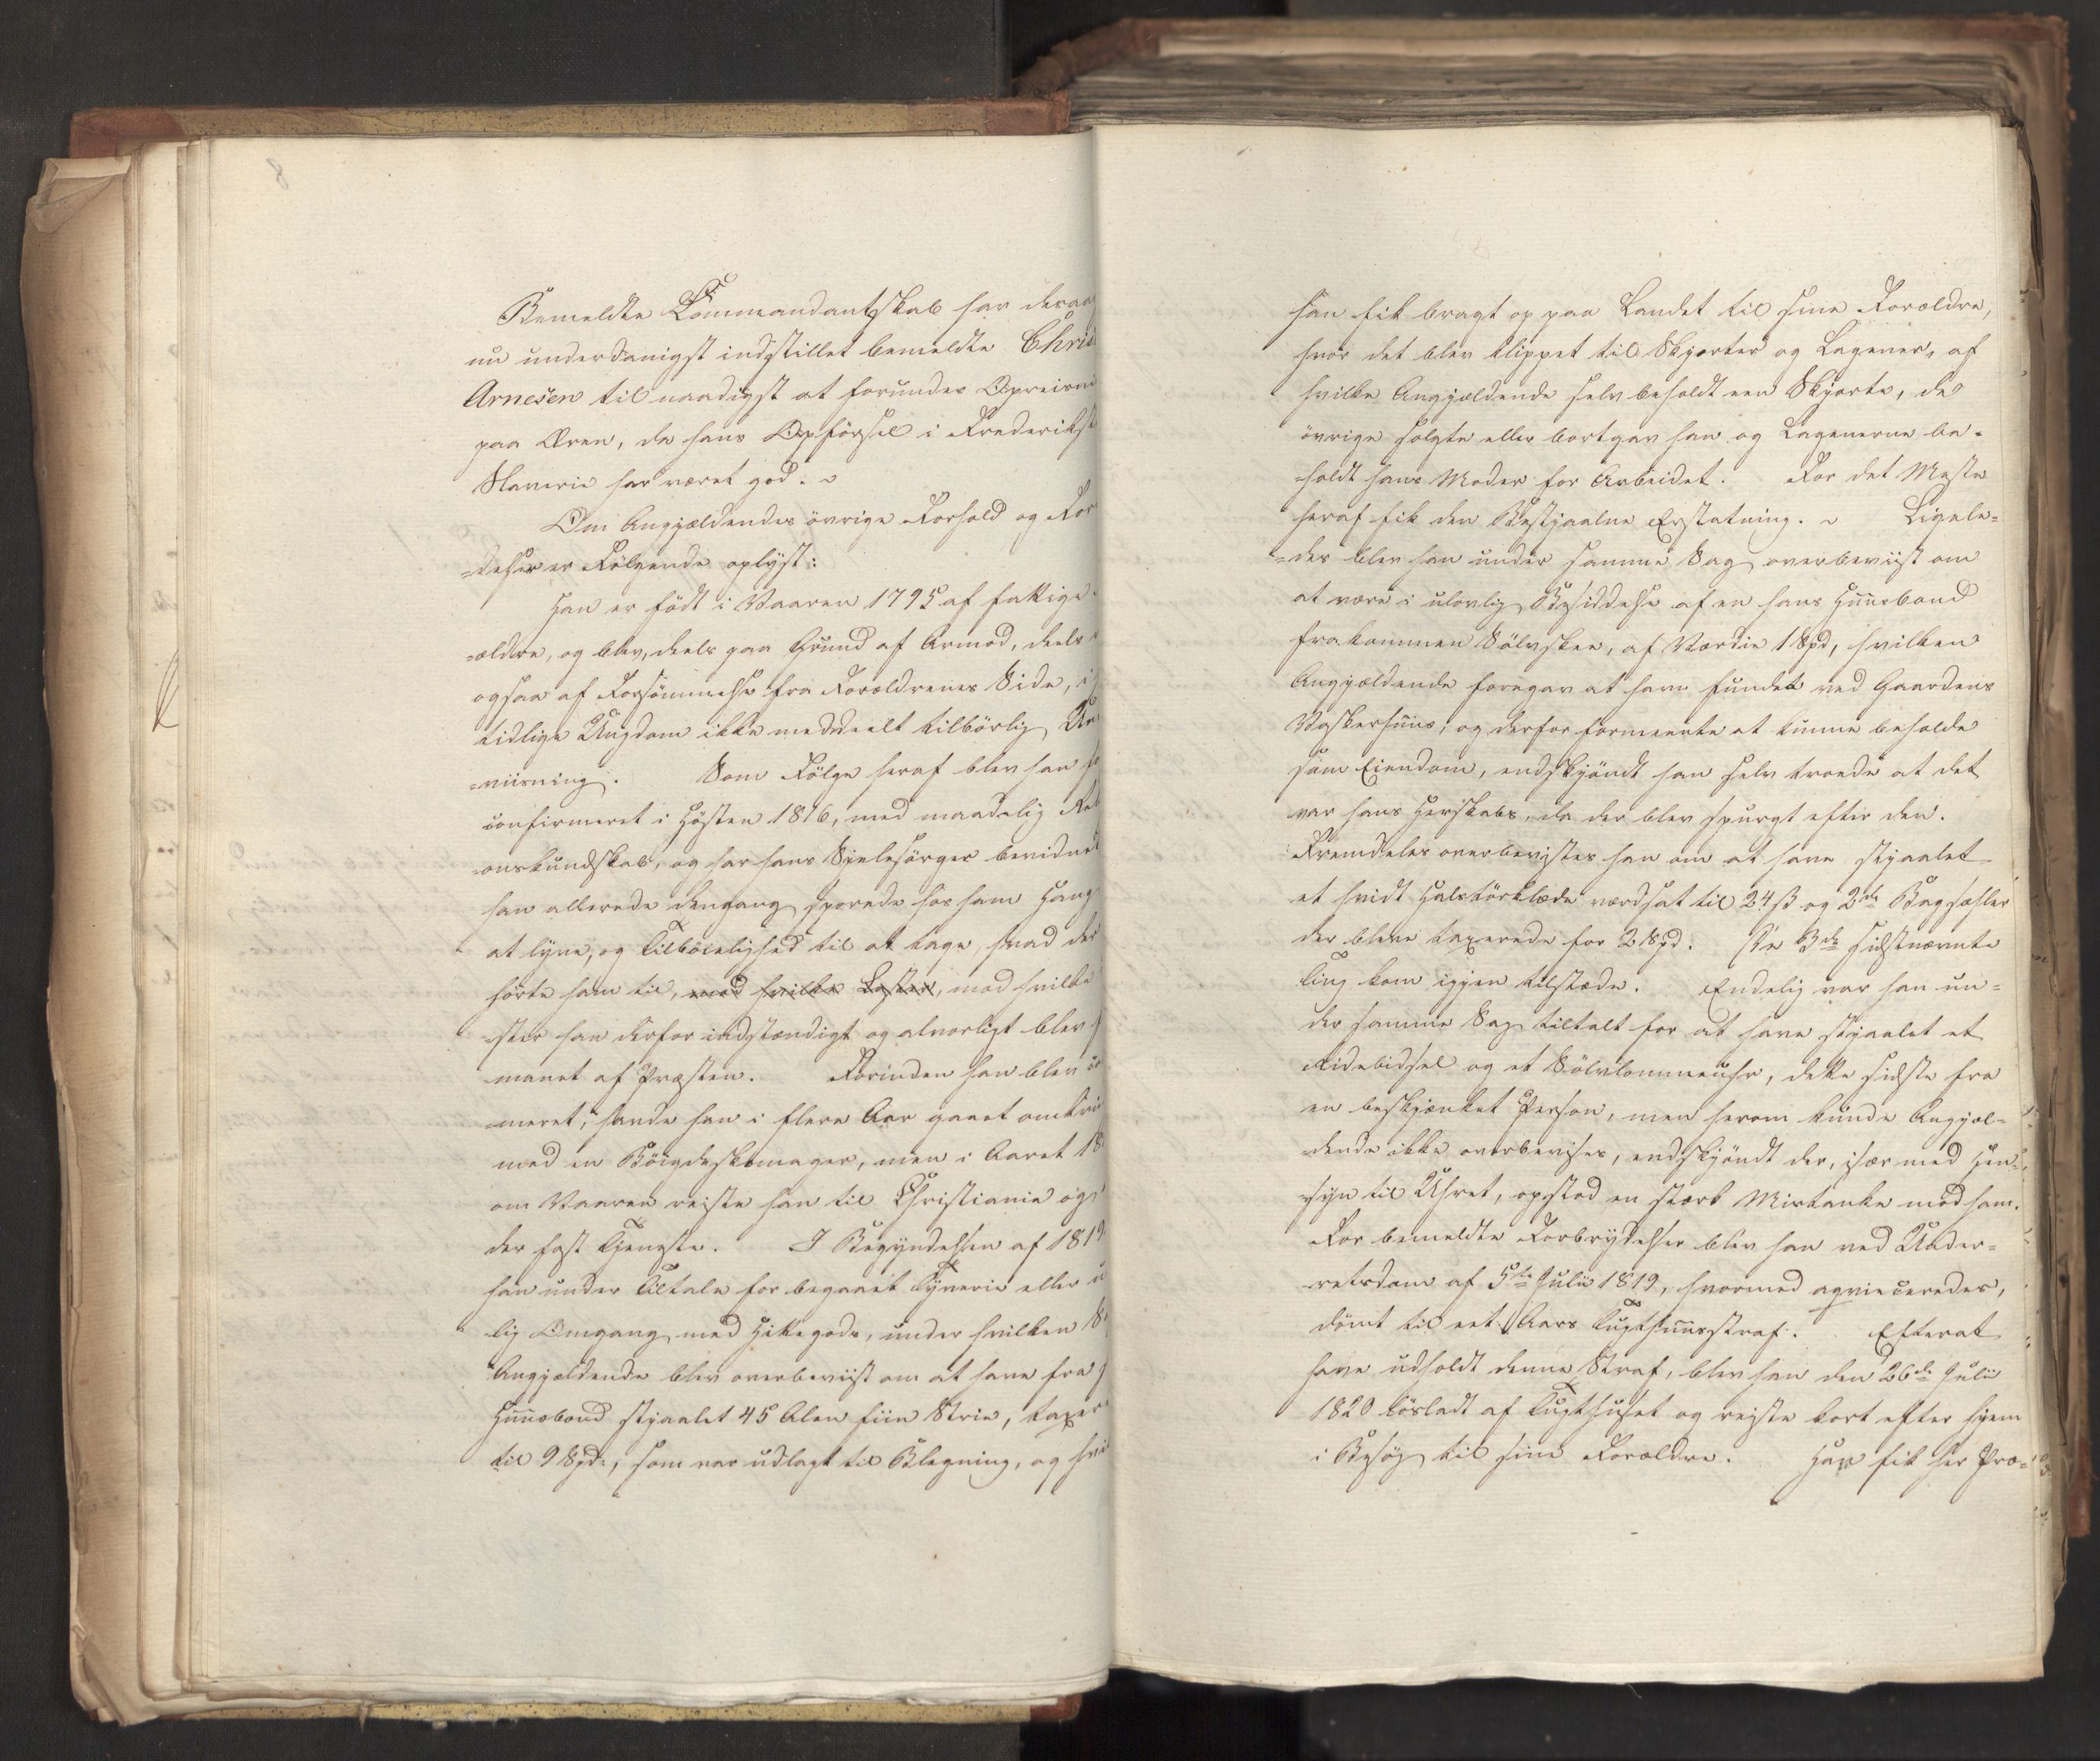 Bemeldte Commandantskab har desaa
nu underdanigst indstillet bemeldte Chris
Arnesen til naadigst at forundes Opreisni
paa Æren, da hans Opförsel i Frederikst
Slaverie har været god.
Om Angjældendes övrige Forhold og For
-delser er Fölgende oplyst:
Han er födt i Vaaren 1795 af fattige
-ældre, og blev, deels paa Grund af Armod, deels
ogsaa af Forsömmelse fra Forældrenes Side, i
tidlige Ungdom ikke meddeelt tilbörlig Un
-viisning. Som Fölge heraf blev han
confirmeret i Hösten 1816, med maadelig Rel
-onskundskab, og har hans Sjelesörger bevidnet
han allerede dengang sporede hos ham Hang
at lyve, og Tilböielighed til at tage, hvad der
hörte ham til, med hvilke Laster, mod hvilke
-ster han derfor indstændigt og alvorligt blev
-manet af Præsten. Forinden han blev co
-meret, havde han i flere Aar gaaet omkri
med en Böigdeskomager, men i Aaret 18
om Vaaren reiste han til Christiania og
der fast Tjeneste. I Begyndelsen af 1819
han under Tiltale for begaaet Tyverie eller u
lig Omgang med Hittegods, under hvilken S
Angjældende blev overbeviist om at have fra
Huusbond stjaalet 45 Alen fiin Strie, taxer
til 9 Spd:, som var udlagt til Blegning, og hvi
han fik bragt op paa Landet til sine Forældre,
hvor det blev klippet til Skjorter og Lagener, af
hvilke Angjældende selv beholdt een Skjorte, de
övrige solgte eller bortgav han og Lagenerne be-
-holdt hans Moder for Arbeidet. For det Meste
heraf fik den Bestjaalne Erstatning. Ligele-
-des blev han under samme Sag overbeviist om
at være i ulovlig Besiddelse af en hans Huusbond
frakommen Sölvskee, af Værdie 1 Spd, hvilken
Angjældende foregav at have fundet ved Gaardens
Vaskerhuus, og derfor formeente at kunne beholde
som Eiendom, endskjöndt han selv troede at det
var hans Herskabs, da der blev spurgt efter den.
Fremdeles overbevistes han om at have stjaalet
et hvidt Halstörklæde værdsat til 24 ß og 2de Bagsæhler
der bleve taxerede for 2 Spd. De 3de sidstnævnte
Ting kom igjen tilstæde. Endelig var han un-
der samme Sag tiltalt for at have stjaalet et
Ridebidsel og et Sölvlommeuhr, dette sidste fra
en beskjænket Person, men herom kunde Angjæl-
-dende ikke overbevises, endskjöndt der, især med Hen-
-syn til Uhret, opstod en stærk Mistanke mod ham.
For bemeldte Forbrydelser blev han ved Under-
-retsdom af 5te Julii 1819, hvormed aqviesceredes,
dömt til eet Aars Tugthuusstraf. Efterat
have udholdt denne Straf, blev han den 26de Julii
1820 lösladt af Tugthuset og reiste kort efter hjem
i Besög til sine Forældre. Han fik her Præ-